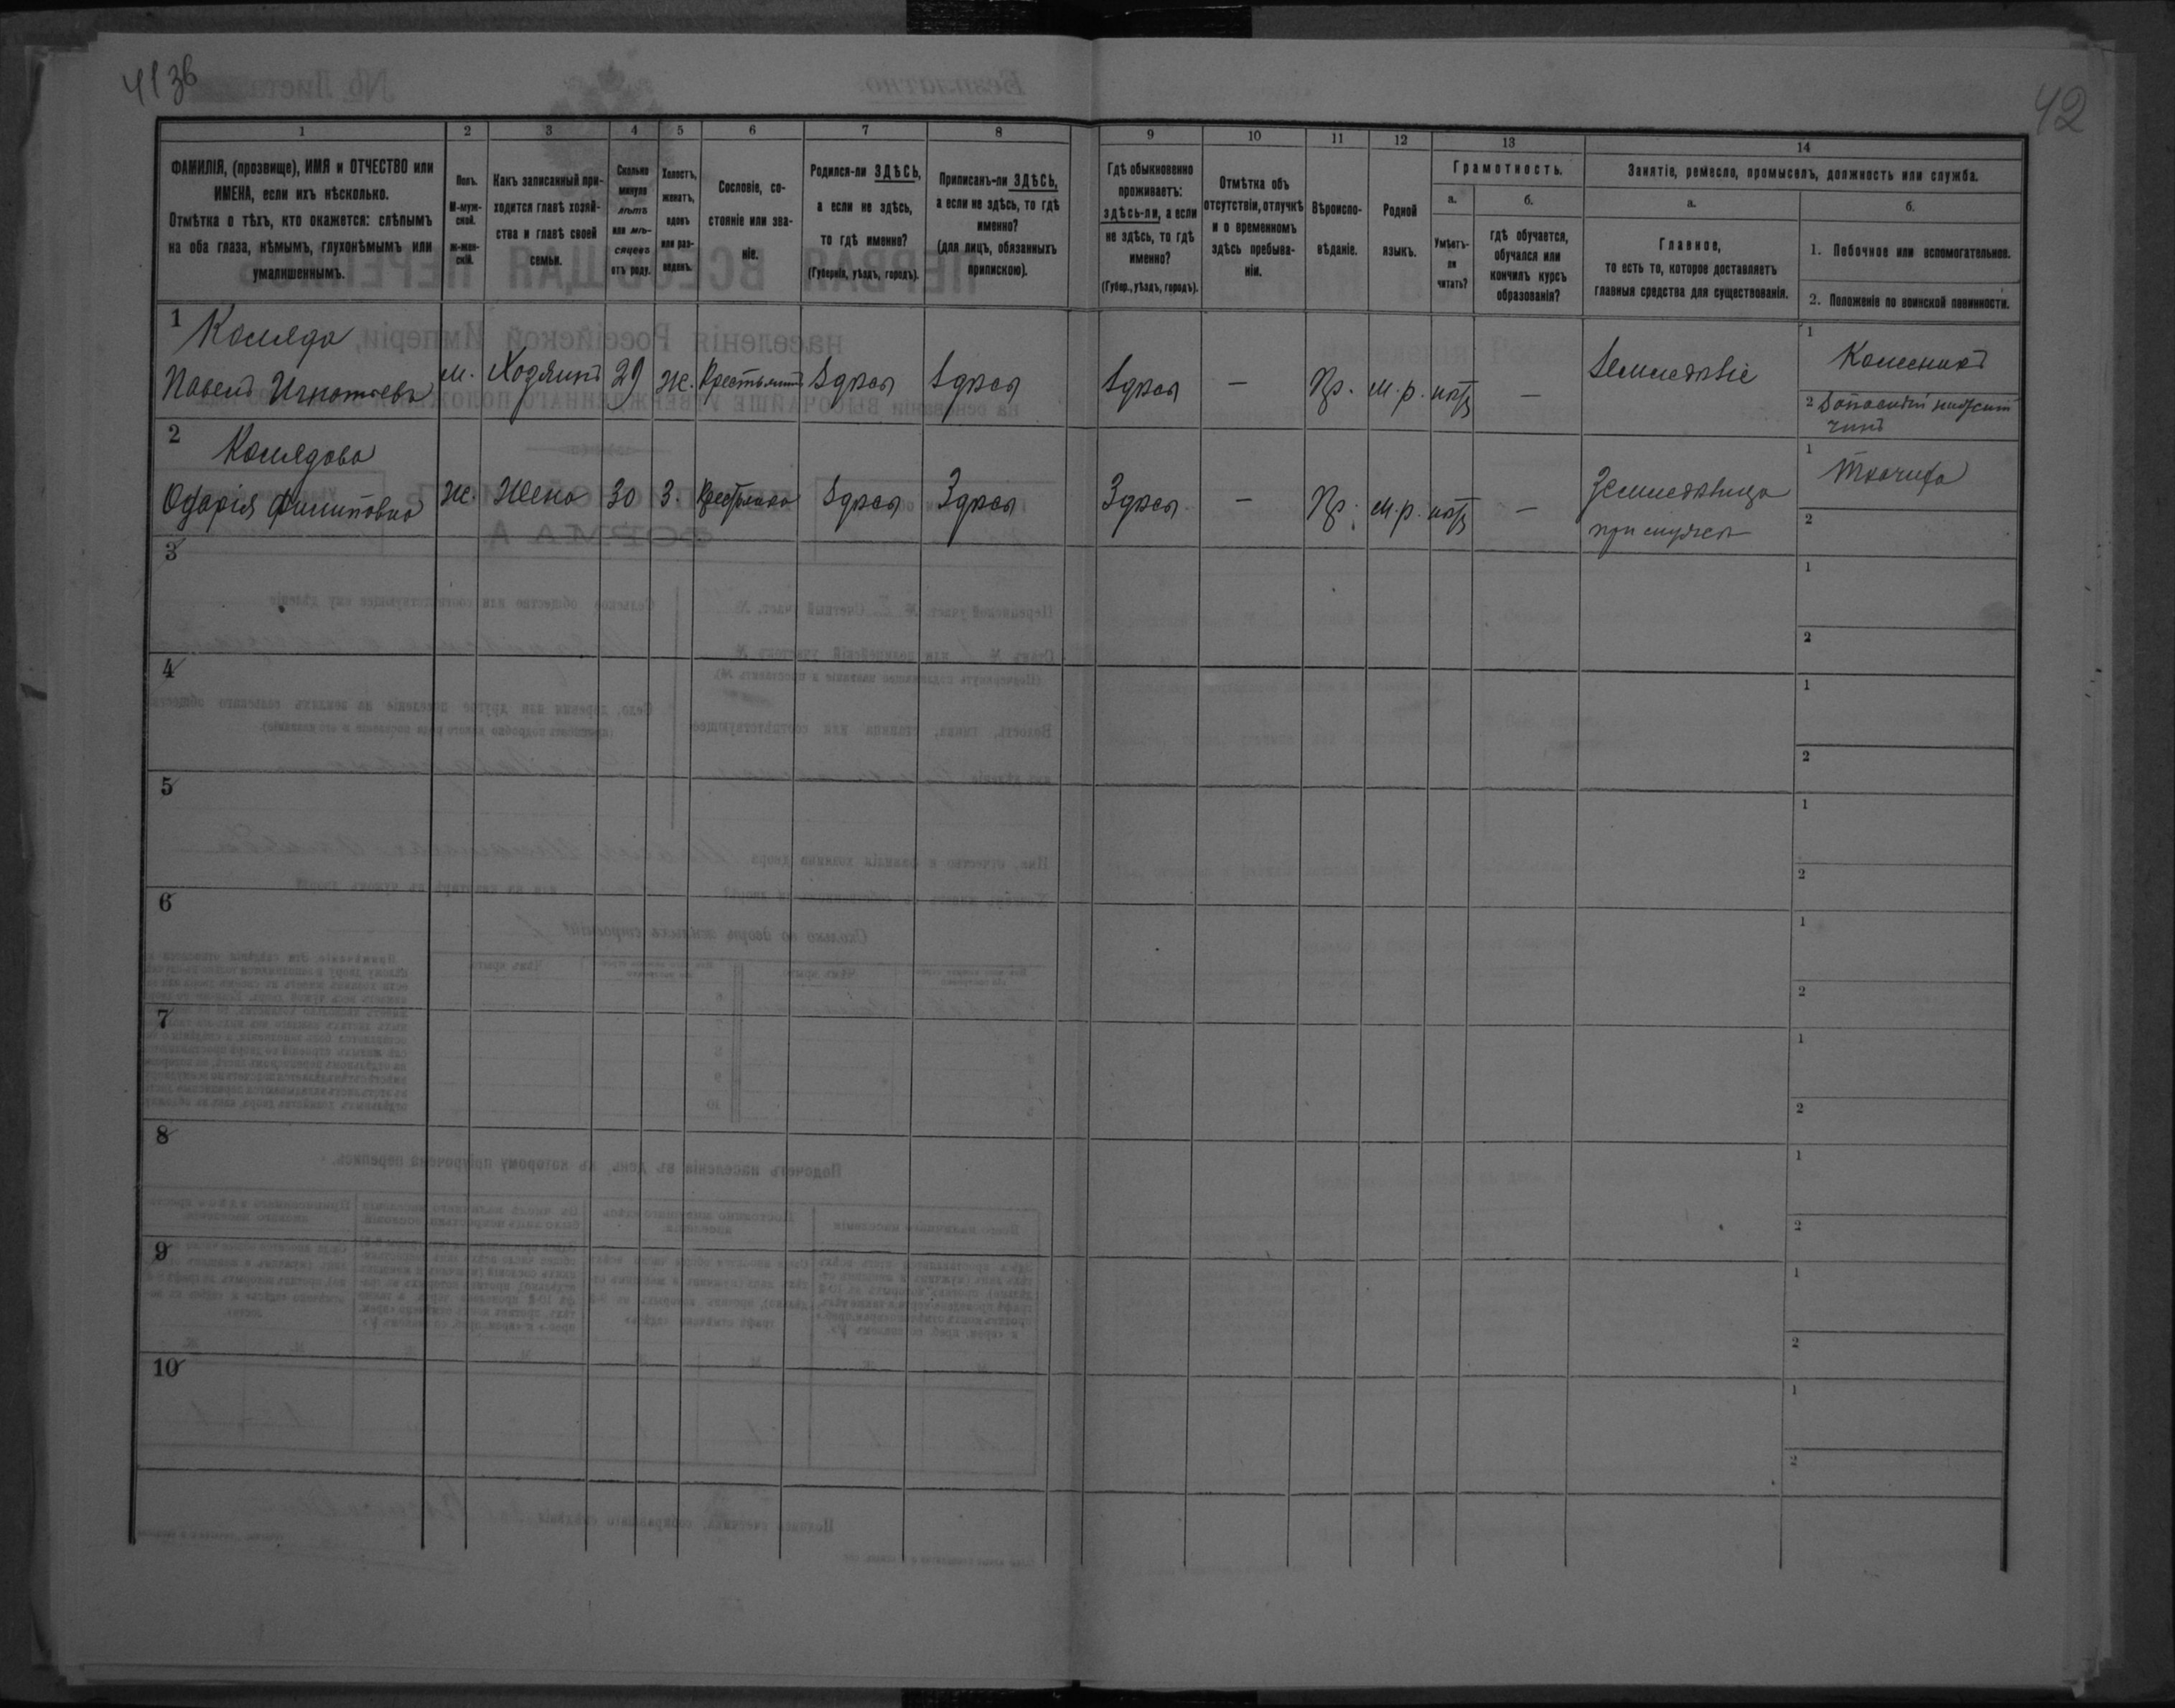 41 зв
42
1
2
3
4
5
6
7
8
9
10
11
12
13
14
ФАМИЛІЯ, (прозвище), ИМЯ и ОТЧЕСТВО или
ИМЕНА, если ихъ нѣсколько.
Отмѣтка о тѣхъ, кто окажется: слѣпымъ
на оба глаза, нѣмымъ, глухонѣмымъ или
умалишеннымъ.
Полъ.
М-муж-
ской.
ж-жен-
скій.
Какъ записанный при-
ходится главѣ хозяй-
ства и главѣ своей
семьи.
Сколько
минуло
лѣтъ
или мѣ-
сяцевъ
отъ роду.
Холостъ,
женатъ,
вдовъ
или раз-
веденъ.
Сословіе, со-
стояніе или зва-
ніе.
Родился-ли ЗДѢСЬ,
а если не здѣсь,
то гдѣ именно?
(Губернія, уѣздъ, городъ).
Приписанъ-ли ЗДѢСЬ,
а если не здѣсь, то гдѣ
именно?
(для лицъ, обязанныхъ
припискою).
Гдѣ обыкновенно
проживаетъ:
здѣсь-ли, а если
не здѣсь, то гдѣ
именно?
(Губер., уѣздъ, городъ).
Отмѣтка объ
отсутствіи, отлучкѣ
и о временномъ
здѣсь пребыва-
ніи.
Вѣроиспо-
вѣданіе.
Родной
языкъ.
Грамотность.
а.
Умѣетъ-
ли
читать?
б.
гдѣ обучается,
обучался или
кончилъ курсъ
образованія?
Занятіе, ремесло, промыселъ, должность или служба.
а.
Главное,
то есть то, которое доставляетъ
главныя средства для существованія.
б.
1. Побочное или вспомогательное.
2. Положеніе по воинской повинности.
1
Коляда
Павелъ Игнатьевъ
м.
Хозяинъ
29
ж.
Крестьянинъ
Здѣсь
Здѣсь
Здѣсь
—
Пр.
м.р.
нѣтъ
—
Земледѣліе
1
Колесникъ
2 Запасный нижній
чинъ
2
Колядова
Филиповна
ж.
Жена
30
З.
Крестьянка
Здѣсь
Здѣсь
Здѣсь
—
Пр.
м.р.
нѣтъ
—
Земледѣлица
при мужѣ
1
Ткачиха
2
3
1
2
4
1
2
5
1
2
6
1
2
7
1
2
8
1
2
9
1
2
10
1
2